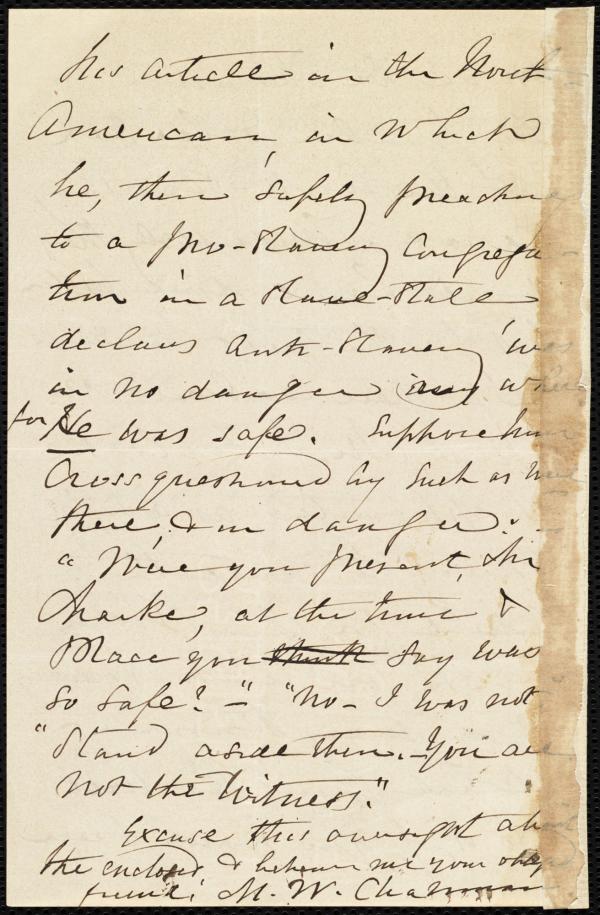 his article in the North
American, in which
he, then safely preaching
to a Pro-Slavery Congrega-
tion in a Slave-State,
declares Anti-Slavery was
in no danger where
for He was safe. Suppose him
Cross questioned by such as were
there, & in danger. -
"Were you present, Mr
Clarke, at the time &
Place you think say was
so safe?" - "No - I was not"
"Stand aside then. - You are
not the Witness."
Excuse this oversight about
the enclosed & believe me your
friend, M. W. Chapman.